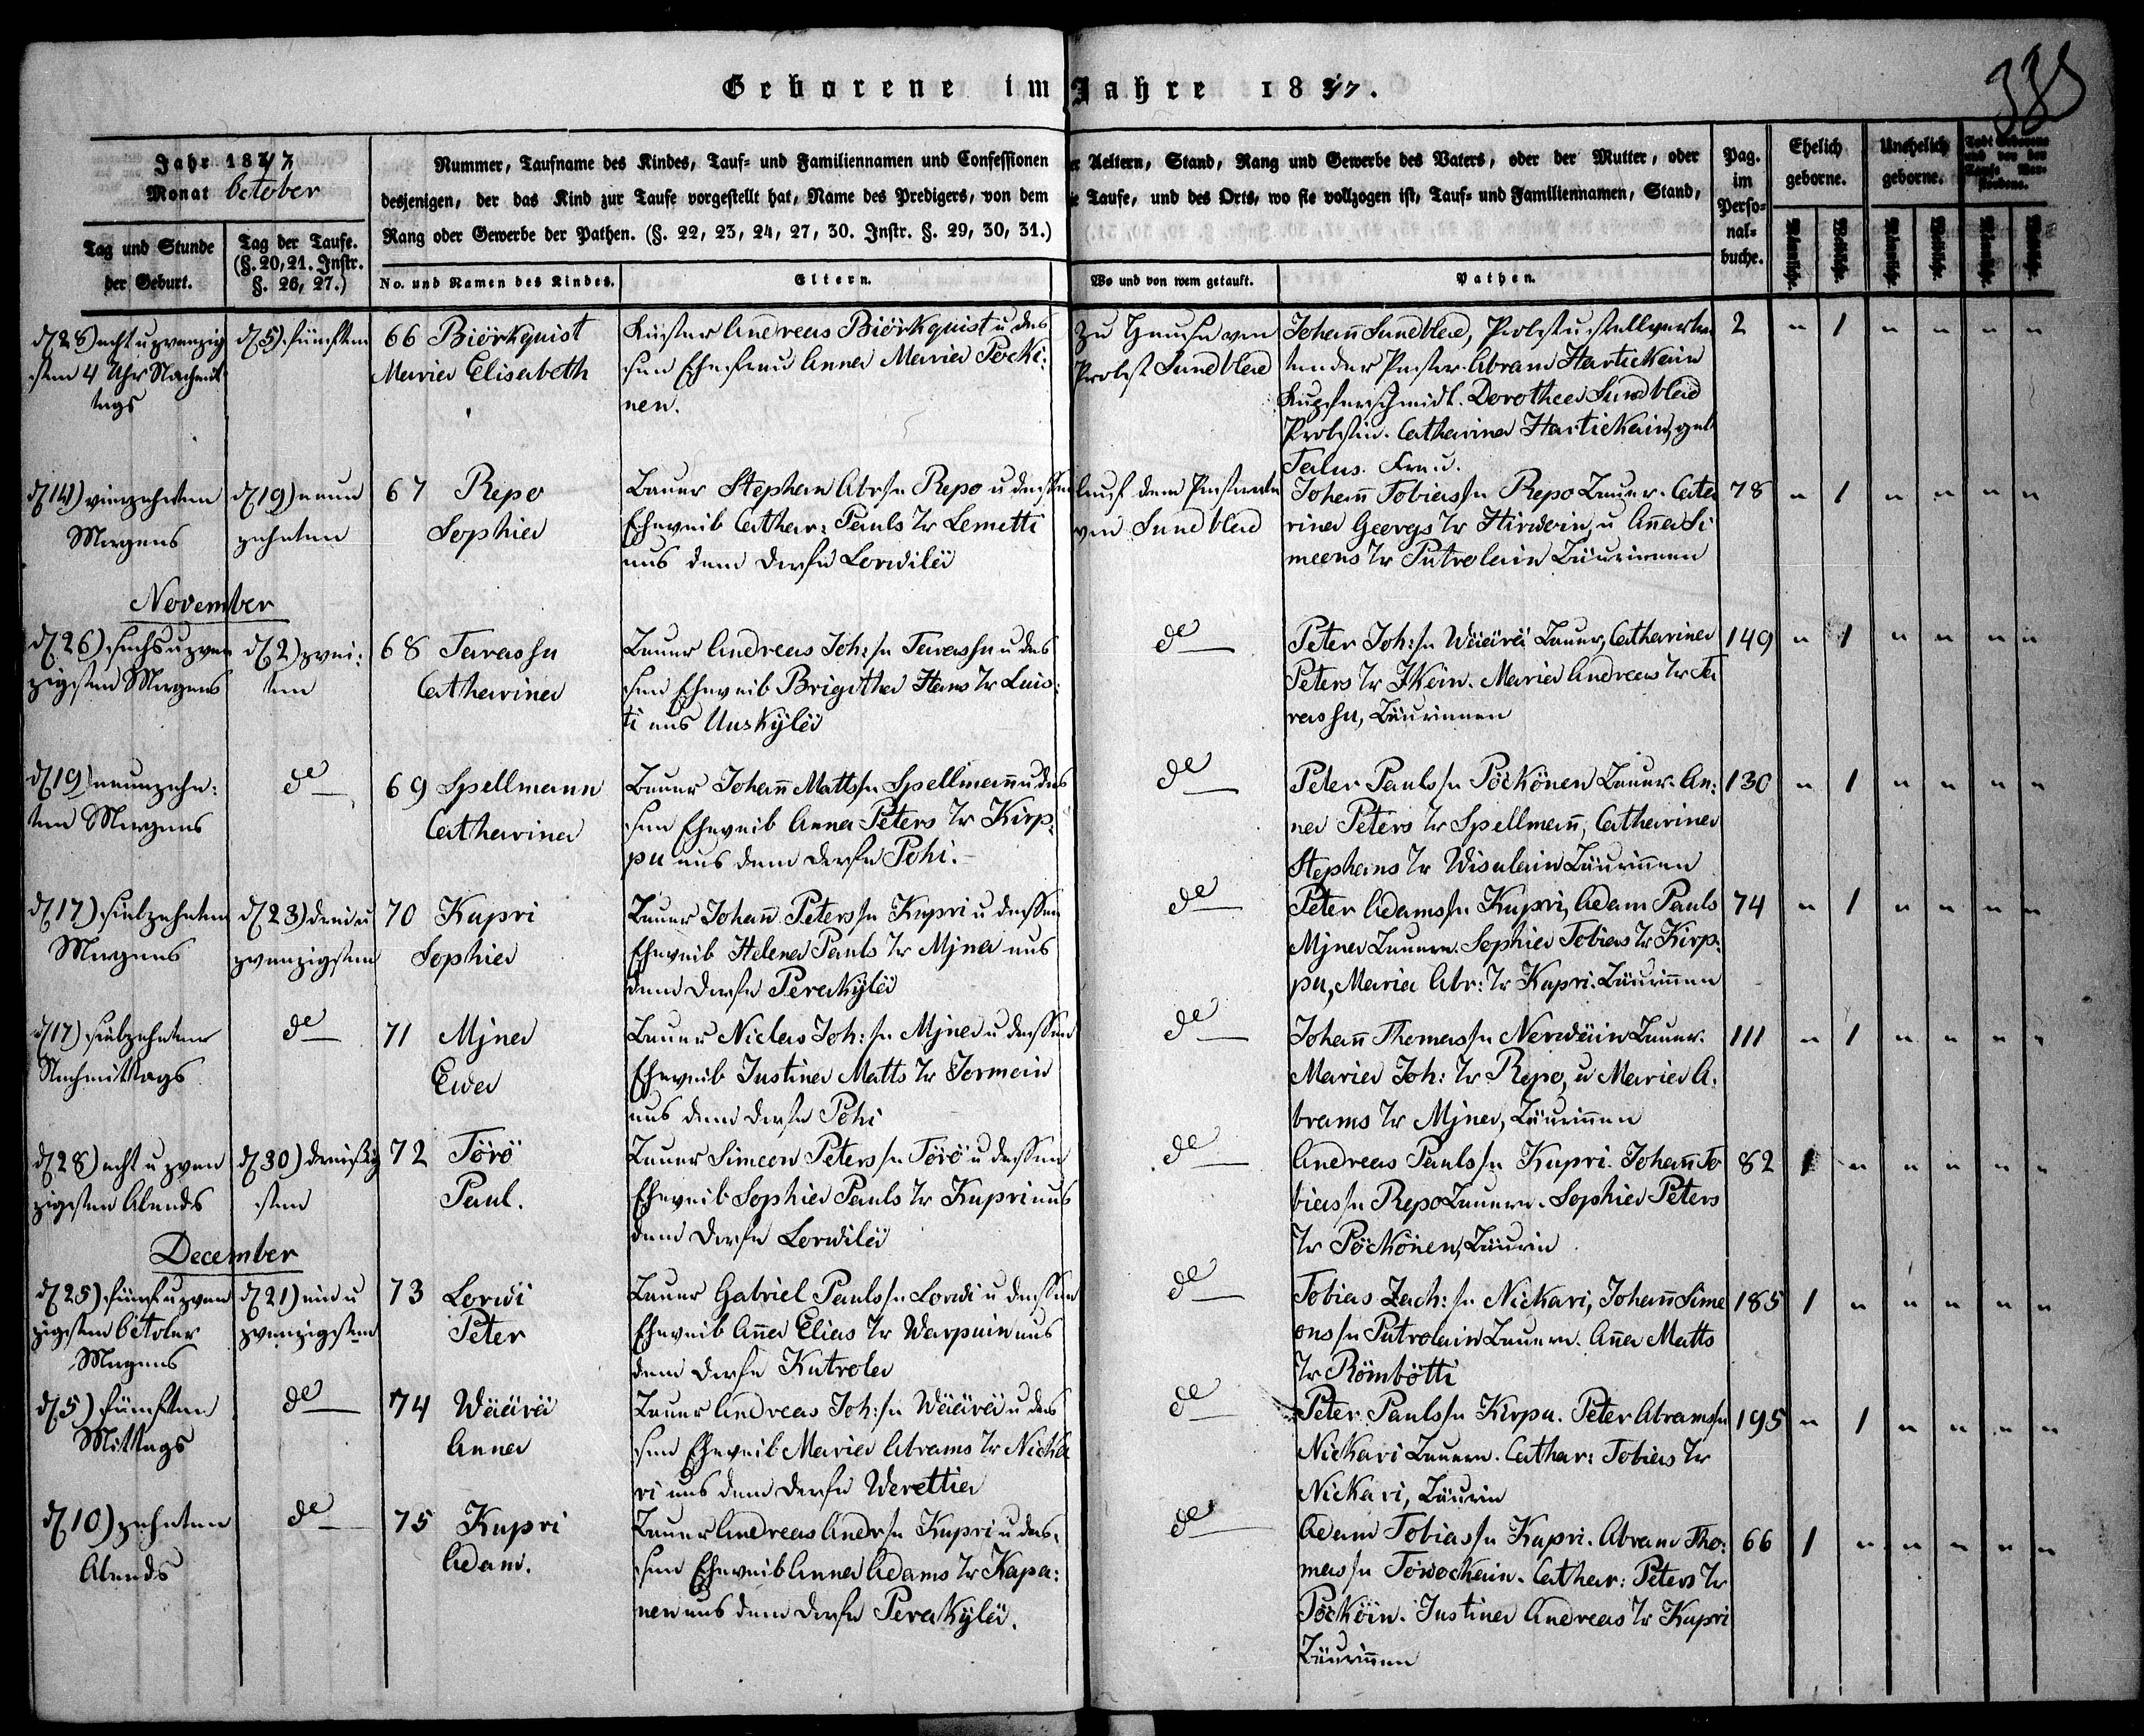 Geborene im Jahre 1847.
338
Jahr 1847
Monat October
Nummer, Taufname des Kindes, Tauf= und Familiennamen und Confessionen der Aeltern, Stand, Rang und Gewerbe des Vaters, oder der Mutter, oder
desjenigen, der das Kind zur Taufe vorgestellt hat, Name des Predigers, von dem die Taufe, und des Orts, wo sie vollzogen ist, Tauf= und Familiennamen, Stand,
Rang oder Gewerbe der Pathen. (§. 22, 23, 24, 27, 30. Instr. §. 29, 30, 31.)
Tag und Stunde
der Geburt.
Tag der Taufe.
(§. 20, 21. Instr.
§. 26, 27.)
No. und Namen des Kindes.
Eltern.
Wo und von wem getauft.
Pathen.
Pag.
im
Perso=
nal=
buche.
Ehelich
geborne.
Unehelich
geborne.
Männliche.
Weibliche.
Männliche.
Weibliche.
Männliche.
Weibliche.
d. 28) acht u zwanzig
sten 4 Uhr Nachmit
tags
d. 5) fünften
66 Biörkquist
Maria Elisabeth
Küster Andreas Biörkquist u des
sen Ehefrau Anna Maria Pöcki:
nen.
Zu Hause von
Probst Sundblad
Johañ Sundblad, Probst u stellvertre
tender Pastor. Abram Hartickain
Kupferschmidt. Dorothea Sundblad
Probstin. Catharina Hartickain, geb
Talus. Frau.
2 " 1 " " " "
d. 14) vierzehnten
Morgens
d. 19) neun
zehnten
67 Repo
Sophia
Bauer Stephan Abr:sn Repo u dessen
Eheweib Cathar: Pauls Tr Lemetti
aus dem Dorfe Lorwilä
auf dem Pastorate
von Sundblad
Johañ Tobias sn Repo Bauer. Catha
rina Georgs Tr Hirwoin, u Aña Si
meons Tr Putrolain Bäurinnen
78 " 1 " " " "
November
d. 26) sechs u zwan
zigsten Morgens
d. 2) zwei:
ten
68 Tarassu
Catharina
Bauer Andreas Joh: sn Tarassu u des
sen Eheweib Brigitha Hans Tr Luis:
ti aus Uuskylä
de
Peter Joh: sn Wäärä Bauer, Catharina
Peters Tr Ikäin. Maria Andreas Tr Ta
rassu, Bäurinnen
149 " 1 " " " "
d. 19) neunzehn:
ten Morgens
de
69 Spellmann
Catharina
Bauer Johañ Matts sn Spellmañ u des
sen Eheweib Anna Peters Tr Kirp:
pu aus dem Dorfe Pohi.
de
Peter Pauls sn Pöckönen Bauer. An:
na Peters Tr Spellmañ, Catharina
Stephans Tr Wisulain Bäuriñen
130 " 1 " " " "
d. 17) siebzehnten
Morgens
d. 23) drei u
zwanzigsten
70 Kupri
Sophia
Bauer Johañ Peters sn Kupri u dessen
Eheweib Helena Pauls Tr Mjna aus
dem Dorfe Perakylä
de
Peter Adams sn Kupri, Adam Pauls
Mjna Bauern. Sophia Tobias Tr Kirp:
pu, Maria Abr: Tr Kupri. Bäuriñen
74 " 1 " " " "
d. 17) siebzehnten
Nachmittags
de
71 Mjna
Ewa
Bauer Niclas Joh: sn Mjna u dessen
Eheweib Justina Matts Tr Jormoin
aus dem Dorfe Pohi
de
Johañ Thomas sn Nerwäin Bauer.
Maria Joh: Tr Repo, u Maria A:
brams Tr Mjna, Bäuriñen
111 " 1 " " " "
d. 28) acht u zwan
zigsten Abends
d. 30) dreißig
sten
72 Törö
Paul.
Bauer Simeon Peters sn Törö u dessen
Eheweib Sophia Pauls Tr Kupri aus
dem Dorfe Lorwilä
de
Andreas Pauls sn Kupri. Johañ To
bias sn Repo Bauern. Sophia Peters
Tr Pöckönen, Bäurin
82 1 " " " " "
December
d. 25) fünf u zwan
zigsten October
Morgens
d. 21) ein u
zwanzigsten
73 Lorwi
Peter
Bauer Gabriel Pauls sn Lorwi u dessen
Eheweib Aña Elias Tr Warpuin aus
dem Dorfe Kutrola
de
Tobias Zach: sn Nickari, Johañ Sime
ons sn Putrolain Bauern. Aña Matts
Tr Römbötti
185 1 " " " " "
d. 5) fünften
Mittags
de
74 Wäärä
Anna
Bauer Andreas Joh: sn Wäärä u des
sen Eheweib Maria Abrams Tr Nicka
ri aus dem Dorfe Werettia
de
Peter Pauls sn Kirpu. Peter Abrams sn
Nickari Bauern. Cathar: Tobias Tr
Nickari, Bäurin
195 " 1 " " " "
d. 10) zehnten
Abends
de
75 Kupri
Adam.
Bauer Andreas Andr sn Kupri u des:
sen Eheweib Anna Adams Tr Kapa:
nen aus dem Dorfe Perakylä.
de
Adam Tobias sn Kupri. Abram Tho:
mas sn Towockain. Cathar: Peters Tr
Pöcköin. Justina Andreas Tr Kupri
Bäuriñen
66 1 " " " " "